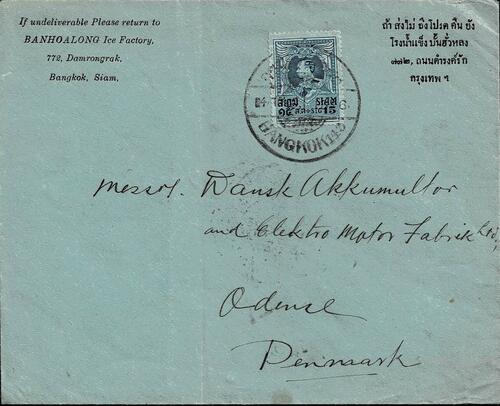 If undeliverable Please return to
BANHOALONG Ice Factory,
772, Damrongrak,
Bangkok, Siam,
ถ้า ส่งไม่ ถึงโปรด คืน ยัง
โรงน้ำแข็ง บั้นฮั่วหลง
๗๗๒, ถนนดำรงค์รัก
กรุงเทพ ฯ
สยาม SIAM
๑๕ 15
BANGKOK
Messrs. Dansk Akkumultor
and Elektro Motor Fabrik Ltd,
Odense
Denmark